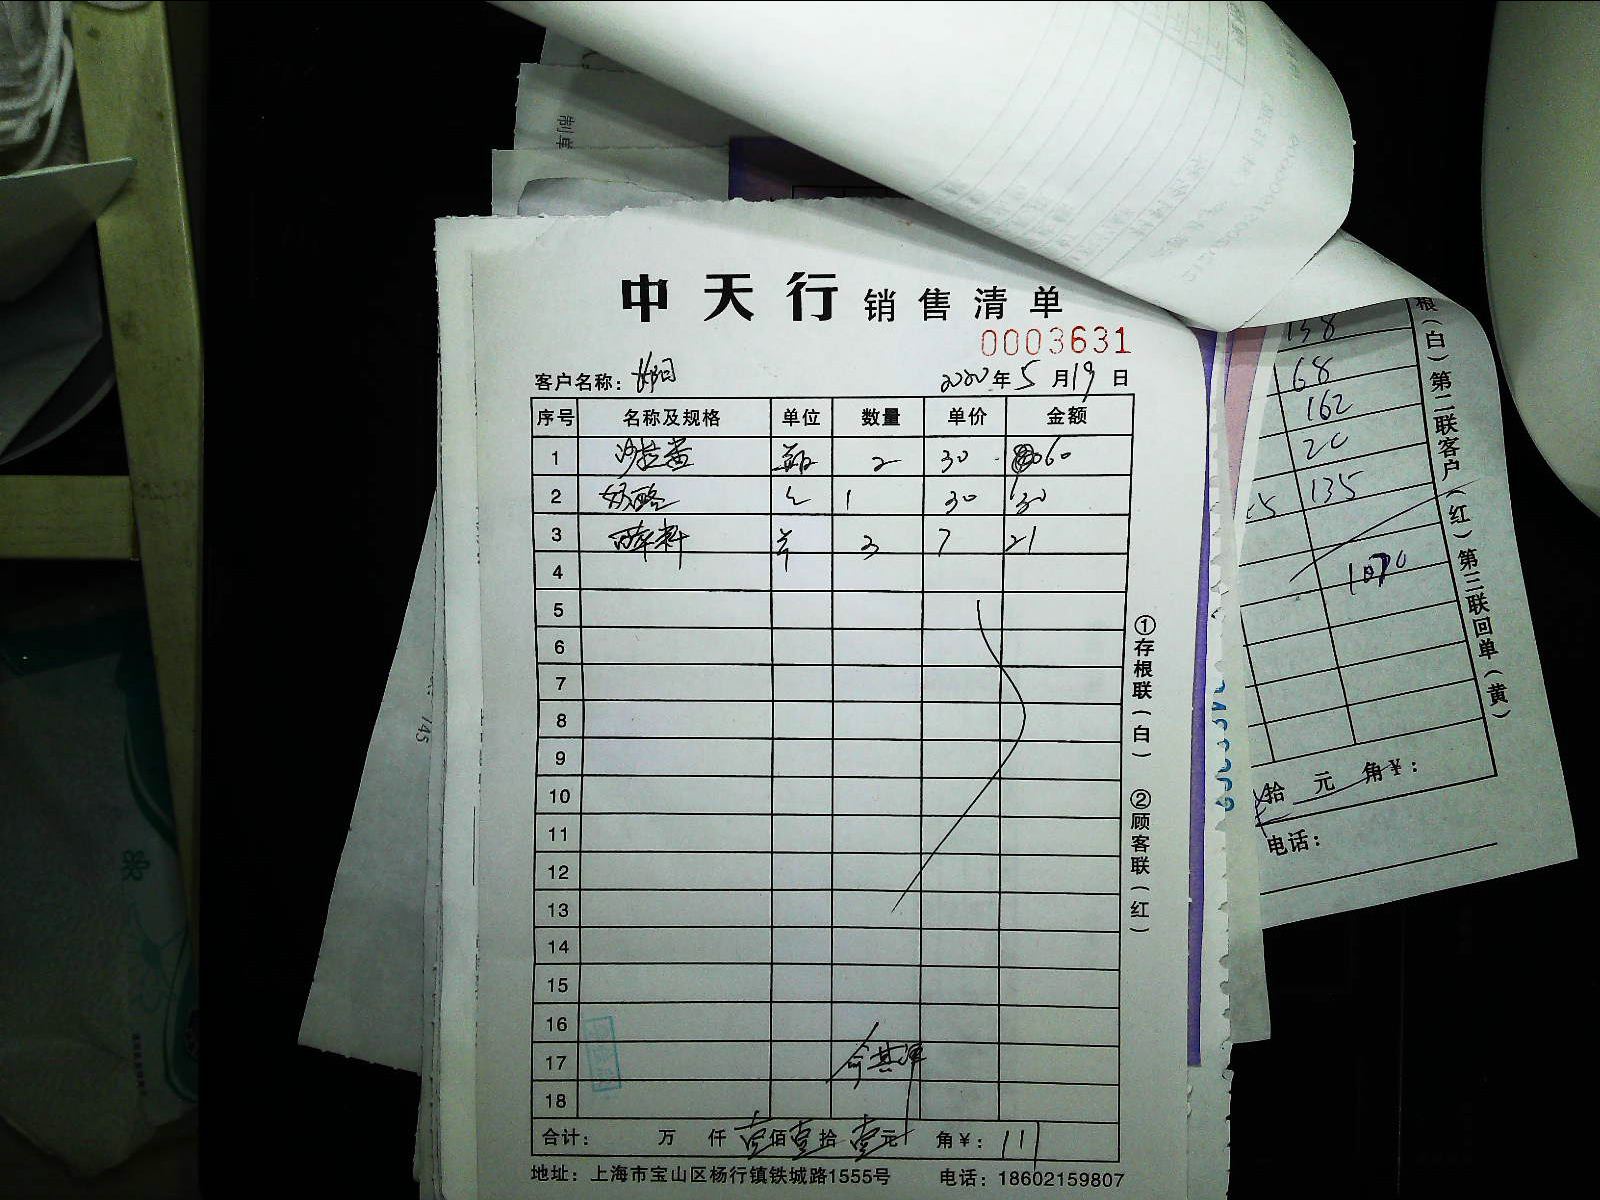 中天行 销售清单
0003631
客户名称：
2020年5月19日
序号 名称及规格 单位 数量 单价 金额
1 沙拉酱 2 30 60
2 奶酪 1 30 30
3 3 7 21
4
5
6
7
8
9
10
11
12
13
14
15
16
17
18
合计： 万 仟 壹佰壹拾壹元 角￥：111
地址：上海市宝山区杨行镇铁城路1555号 电话：18602159807
①存根联（白） ②顾客联（红）
138
68
162
20
135
1070
根（白）第二联客户（红）第三联回单（黄）
拾 元 角￥：
电话：
145
制单